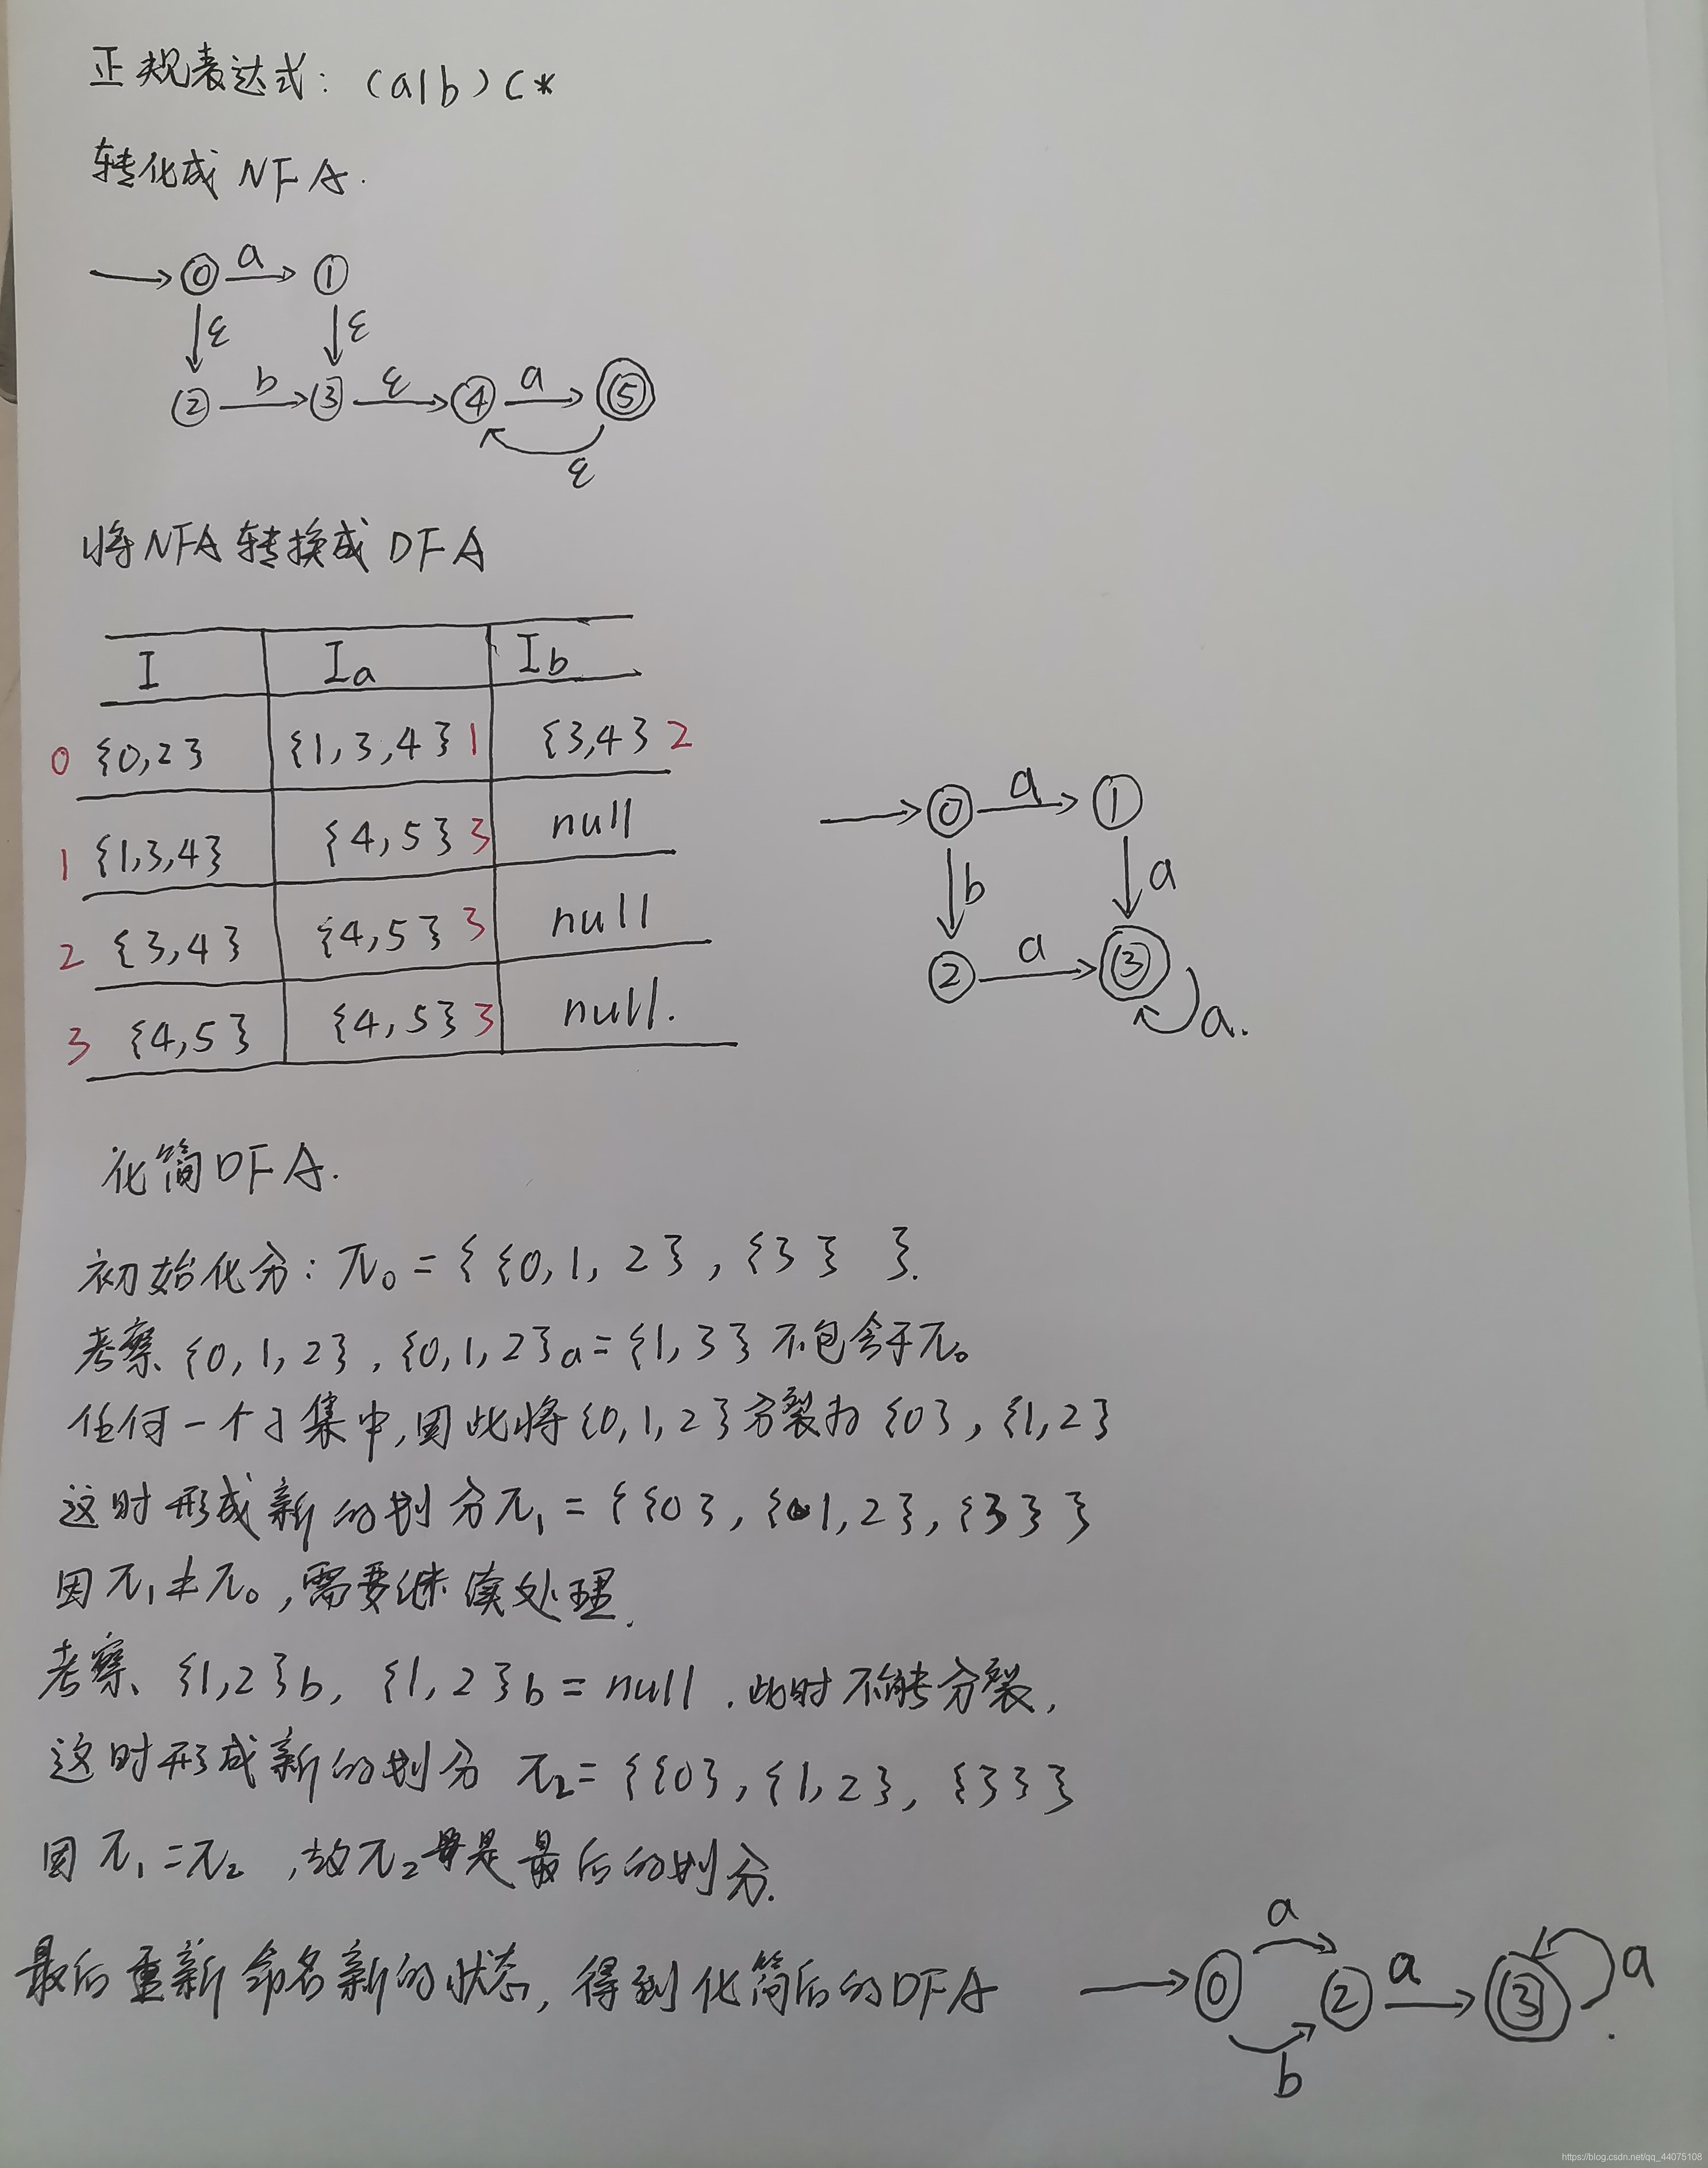 正规表达式：(a|b)c*
转化成NFA.
0 a 1
ε ε
2 b 3 ε 4 a 5
ε
将NFA转换成DFA
I Ia Ib
0 {0,2} {1,3,4} 1 {3,4} 2
1 {1,3,4} {4,5} 3 null
2 {3,4} {4,5} 3 null
3 {4,5} {4,5} 3 null.
0 a 1
b a
2 a 3
a.
化简DFA.
初始化分：π₀={{0,1,2},{3}}.
考察{0,1,2},{0,1,2}a={1,3}不包含于π₀
任何一个子集中,因此将{0,1,2}分裂为{0},{1,2}
这时形成新的划分π₁={{0},{1,2},{3}}
因π₁≠π₀,需要继续处理.
考察{1,2}b,{1,2}b=null.此时不能分裂,
这时形成新的划分π₂={{0},{1,2},{3}}
因π₁=π₂,故π₂是最后的划分.
最后重新命名新的状态,得到化简后的DFA
a
0 2 a 3 a
b
https://blog.csdn.net/qq_44075108